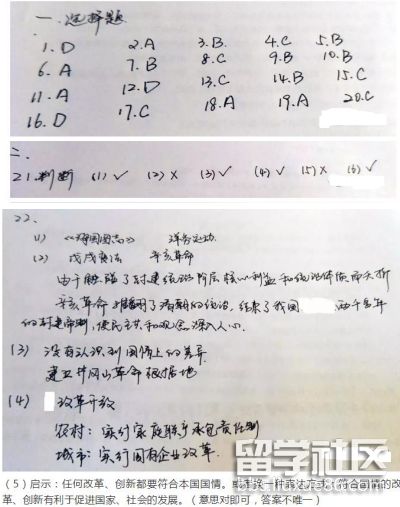 一、选择题
1. D 2. A 3. B. 4. C 5. B
6. A 7. B 8. C 9. B 10. B
11. A 12. D 13. C 14. B 15. C
16. D 17. C 18. A 19. A 20. C
二、
21. 判断 (1) √ (2) × (3) √ (4) √ (5) × (6) √
22.
(1) 《海国图志》 洋务运动
(2) 戊戌变法 辛亥革命
由于触犯了封建统治阶层核心利益和统治体制而夭折
辛亥革命推翻了清朝的统治,结束了我国 两千多年
的封建帝制,使民主共和观念深入人心.
(3) 没有认识到国情上的差异
建立井冈山革命根据地
(4) 改革开放
农村:实行家庭联产承包责任制
城市:实行国有企业改革.
(5)启示:任何改革、创新都要符合本国国情。或者换一种表达方式:符合国情的改
革、创新有利于促进国家、社会的发展。(意思对即可,答案不唯一)
留学社区
liuxue86.com